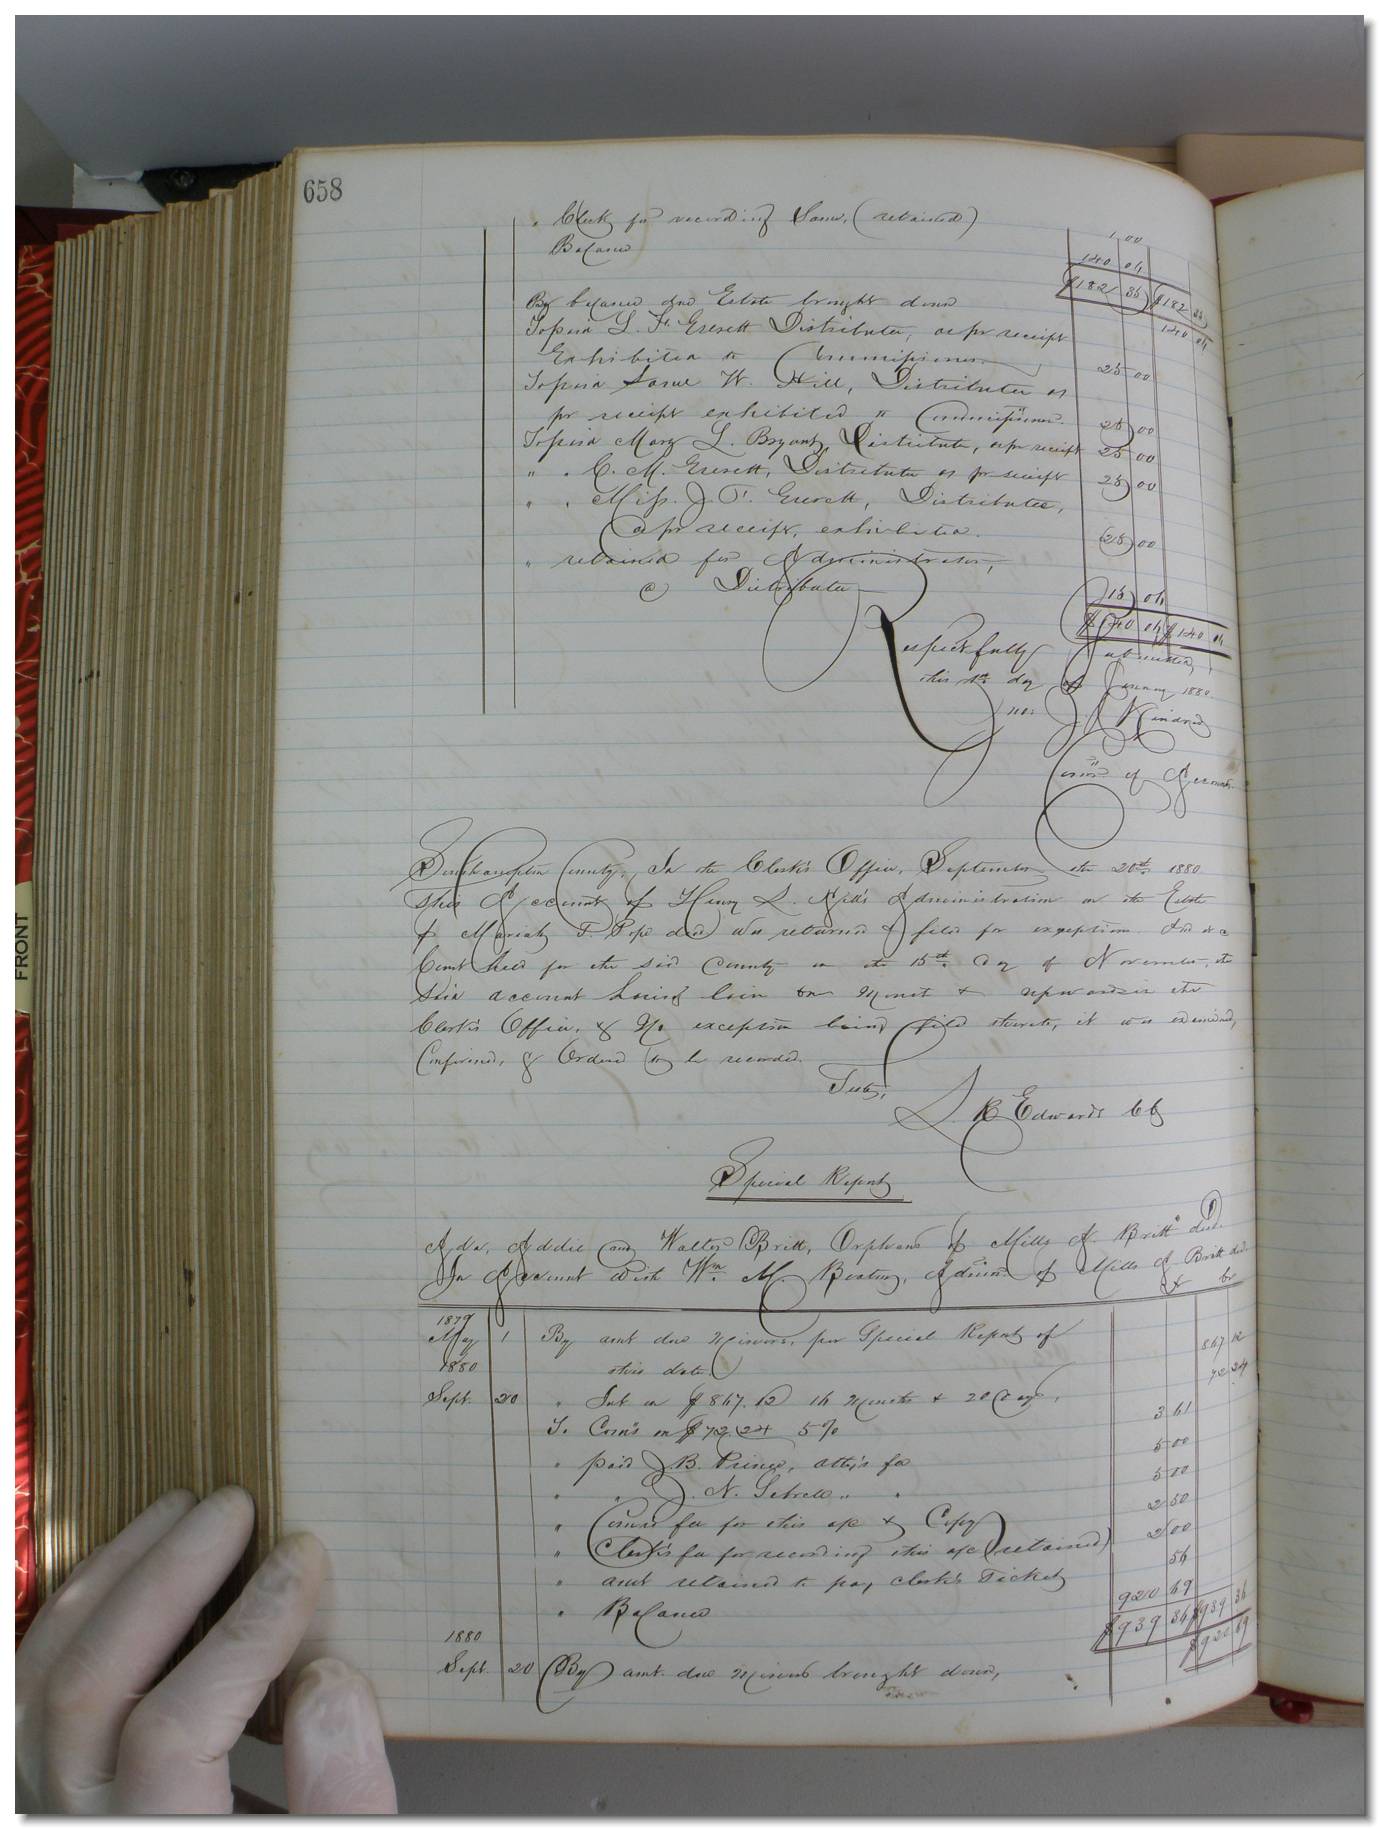 658
" Clerk for recording Same, (retained) 1 00
Balance 140 04
$182 35 $182 35
By balance due Estate brought down 140 04
To paid L. F. Everett Distributee, as pr receipt
Exhibited to Commissioner. 25 00
To paid W. Hill, Distributee as
pr receipt exhibited to Commissioner. 25 00
To paid Mary L. Bryant, Distributee, as pr receipt 25 00
" " C. M. Everett, Distributee as pr receipt 25 00
" " Miss. J. T. Everett, Distributee,
as pr receipt, exhibited. 25 00
" retained for Administrator,
a Distributee 15 04
$140 04 $140 04
Respectfully submitted,
this day of January 1880.
J. Kindred
Comr of Accounts.
Southampton County, In the Clerk's Office, September the 20th 1880
This Account of Henry L. Administration on the Estate
of Mariah T. Pope decd was returned & filed for exception. And at a
Court held for the said County on the 15th day of November, the
Said account having lain one Month & upwards in the
Clerk's Office, & No exception being filed thereto, it was examined,
Confirmed, & Ordered to be recorded.
Teste,
L. R. Edwards CC
Special Report
Ada, Addie and Walter Britt, Orphans of Mills A. Britt decd.
In Account with Wm. M. Beaton, Admr. of Mills A Britt decd.
Dr Cr
1879
May 1 By amt due Minors, per Special Report of
this date. 867 12
1880
Sept. 20 " Int on $867.12 16 Months & 20 Days, 72 24
To Com's on $72.24 5% 3 61
" paid J. B. Prince, atto's fee 5 00
" " J. N. Sebrell " " 5 00
" Comrs fee for this a/c & Copy 2 50
" Clerk's fee for recording this a/c (retained) 2 00
" amt retained to pay clerk's Ticket 56
" Balance 920 69
$939 36 $939 36
1880
Sept. 20 By amt. due Minors brought down, $920 69
FRONT